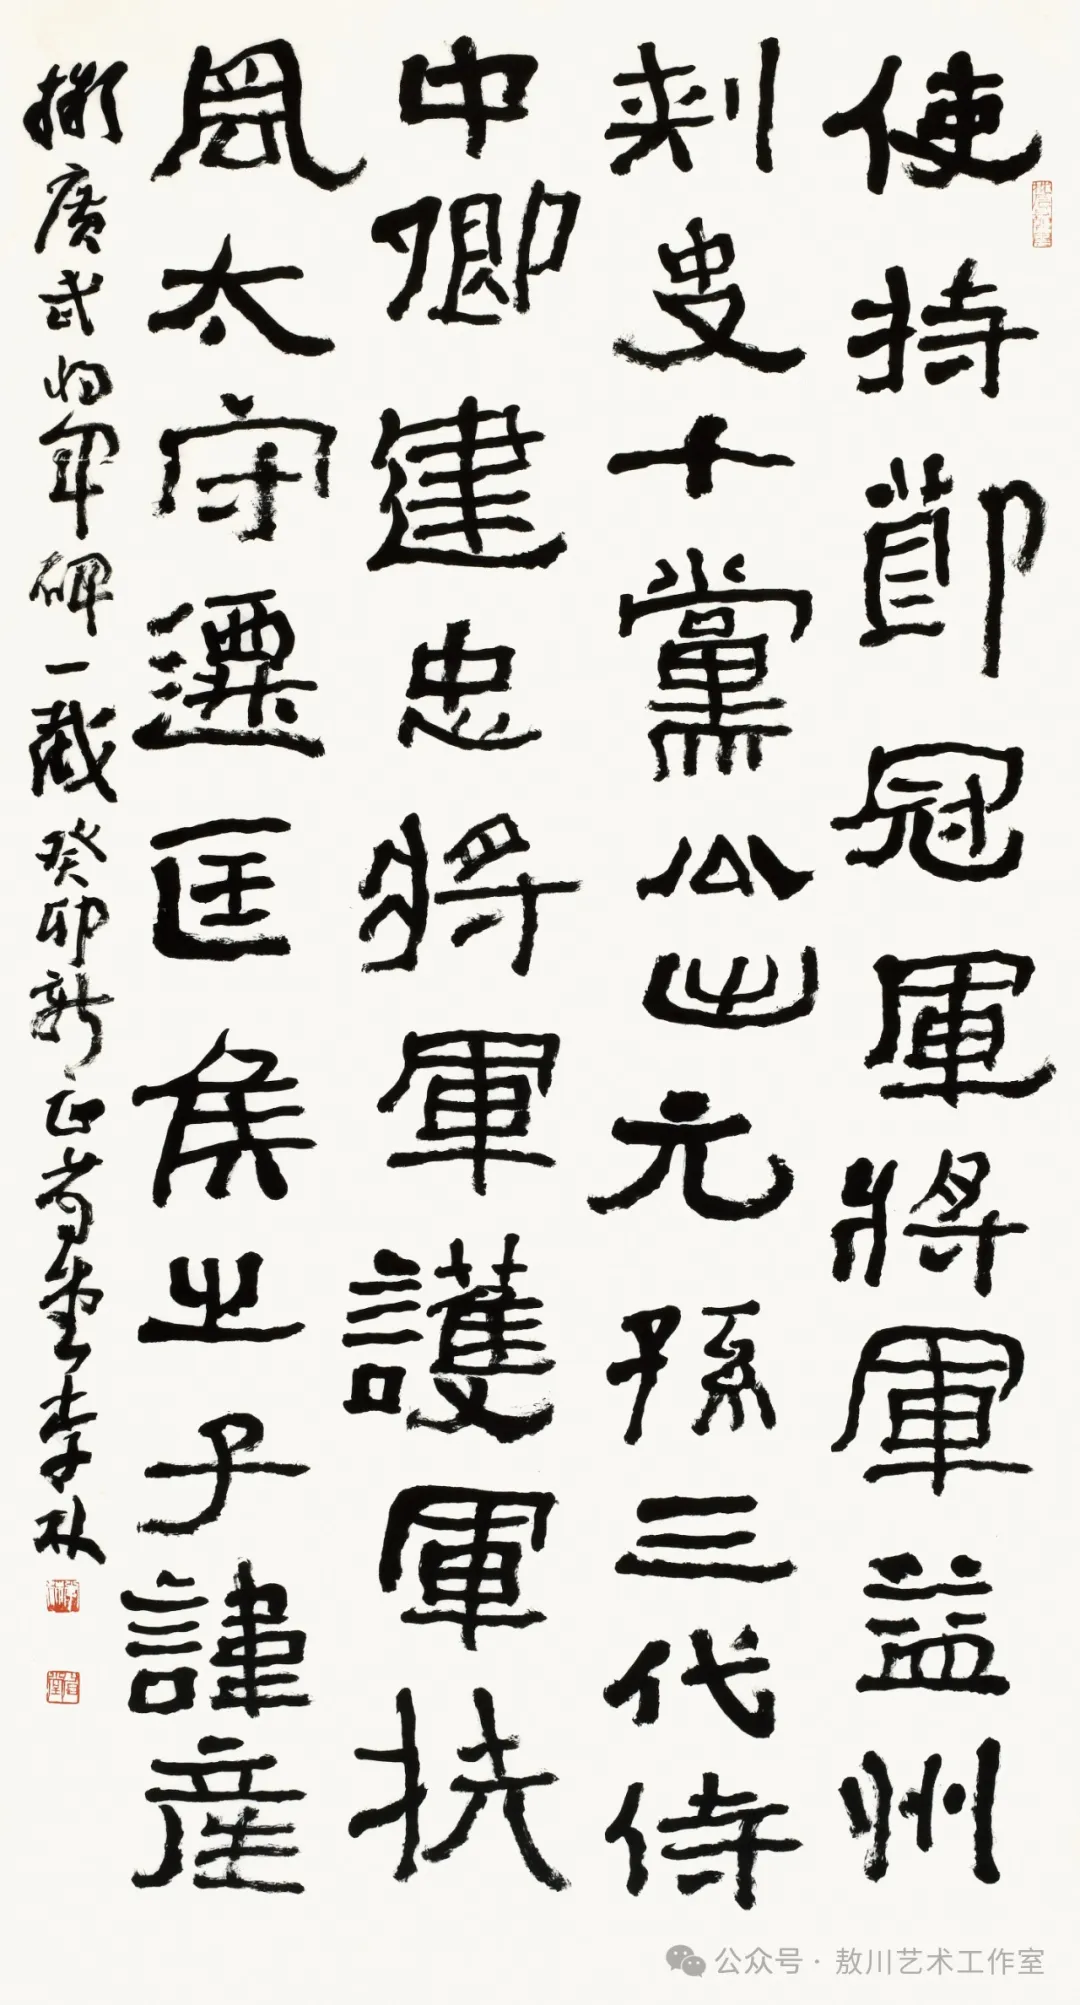 使持節冠軍將軍益州
刾叓十黨公之元孫三代侍
中卿建忠將軍護軍扶
風太守遷匡侯之子諱産
廣武將軍碑一截癸卯新正省堂李
公众号·敖川艺术工作室